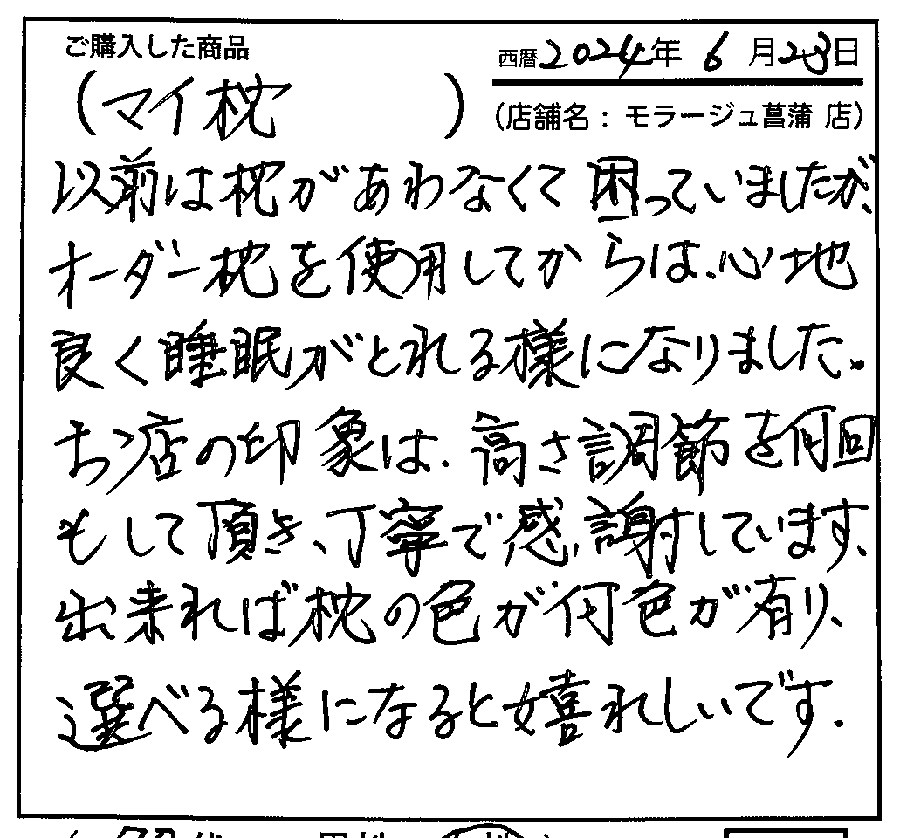 ご購入した商品
西暦2024年 6月23日
(マイ枕 )
(店舗名：モラージュ菖蒲 店)
以前は枕があわなくて困っていましたが、
オーダー枕を使用してからは、心地
良く睡眠がとれる様になりました。
お店の印象は、高さ調節を何回
もして頂き、丁寧で感謝しています、
出来れば枕の色が何色が有り、
選べる様になると嬉れしいです.